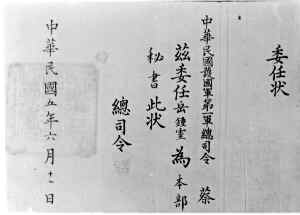 委任状
中華民國護國軍第一軍總司令 蔡
茲委任岳鍾室為本部
秘書此状
總司令
中華民國五年六月十一日